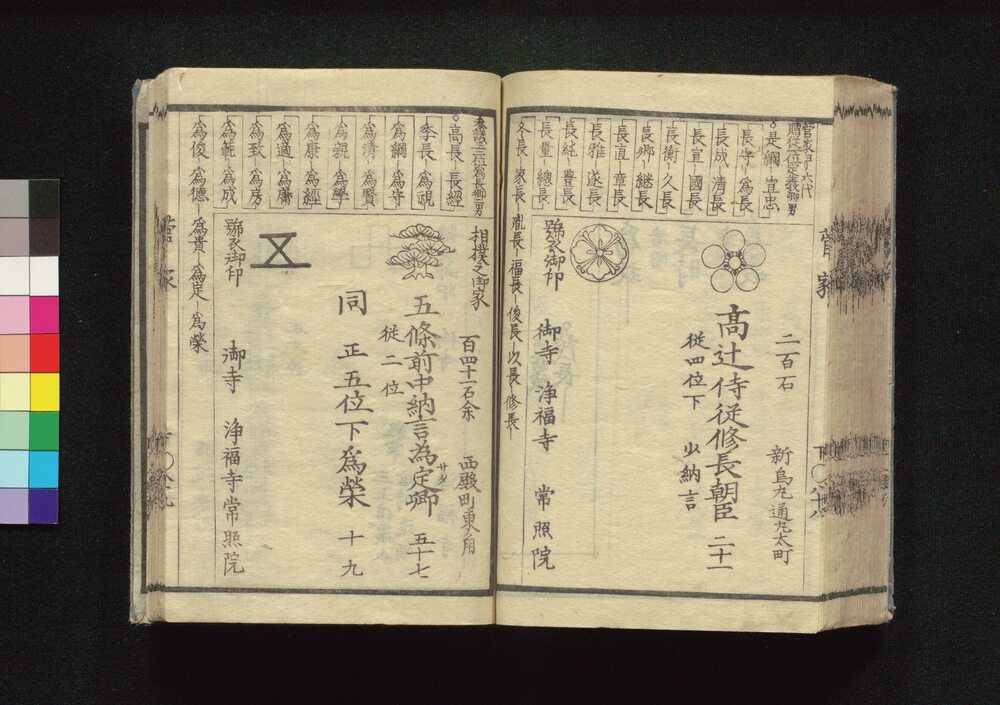 菅家
菅家ヨリ六代
贈従一位定義卿男
是綱-宜忠
長守-為長
長成-清長
長宣-國長
長衡-久長
長郷-継長
長直-章長
長雅-遂長
長純-豊長
長量-總長
冬長
胤長-福長-俊長-以長-修長
二百石
新烏丸通丸太町
髙辻侍従修長朝臣 二十一
従四位下 少納言
號衣御印
御寺 浄福寺 常照院
参議三位為長卿二男
高長-長經
季長-為視
為綱-為守
為清-為賢
為親-為學
為康-為經
為適-為庸
為致-為房
為範-為成
為俊-為德-為貴-為定-為榮
相撲之御家
百四十一石余
西殿町東角
五條前中納言為定卿 五十七
サダ
従二位
同 正五位下為榮 十九
號衣御印
御寺 浄福寺常照院
菅家